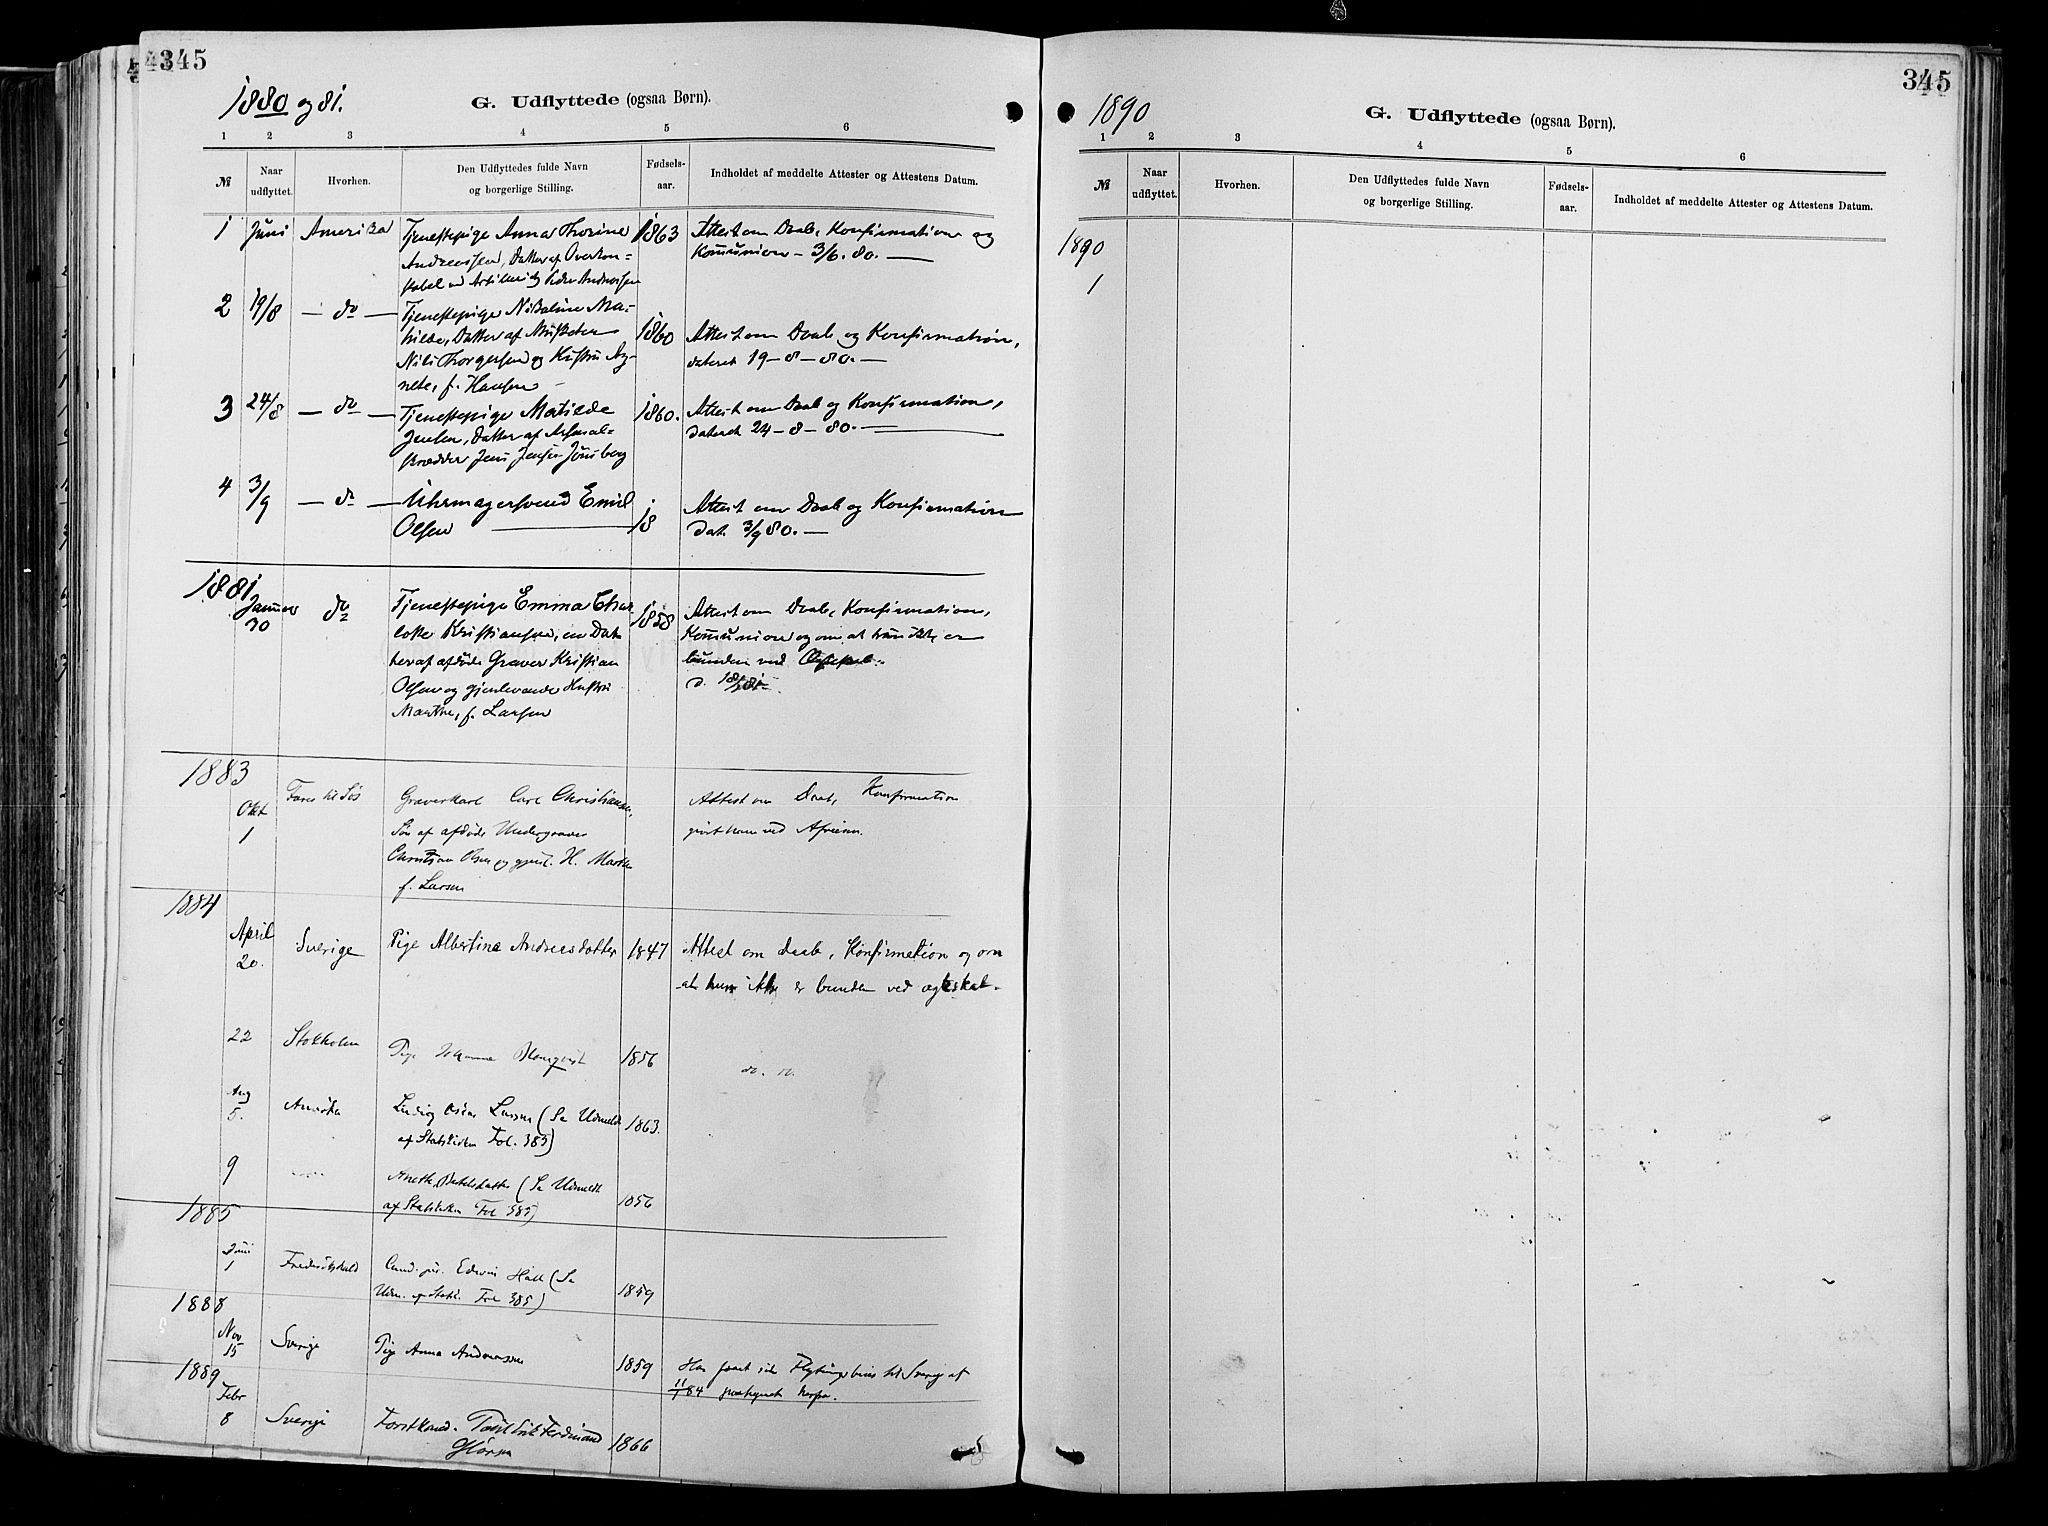 345
1880 og 81.
G. Udflyttede (ogsaa Børn).
1 2 3 4 5 6
№ Naar udflyttet. Hvorhen. Den Udflyttedes fulde Navn og borgerlige Stilling. Fødselsaar. Indholdet af meddelte Attester og Attestens Datum.
1 Juni Amerika Tjenestepige Anna Thorine 1863 Attest om Daab, Konfirmation og
Andreassen, Datter af Overkon= Kommunion – 3/6. 80. —
stabel ved Artilleriet Andreassen
2 19/8 — do — Tjenestepige Nikoline Ma-
thilde, Datter af 1860 Attest om Daab og Konfirmation,
Nils Thorgersen og Hustru Ag- dateret 19–8–80. —
nete, f. Hansen –
3 24/8 — do — Tjenestepige Matilde 1860. Attest om Daab og Konfirmation,
Jensen, Datter af Arsenal- dateret 24–8–80. —
snedker Jens Jensen
4 3/9 — do — Uhrmagersvend Emil Attest om Daab og Konfirmation
Olsen — 18 Dat. 3/9 80. —
1881
Januar 30 do Tjenestepige Emma Char- 1858 Attest om Daab, Konfirmation,
lotte Kristiansen, en Dat- Kommunion og om at hun ikke er
ter af afdøde Graver Kristian bunden ved Ægteskab.
Olsen og gjenlevende Hustru d.
Marthe, f. Larsen
1883
Okt 1 Farer til Søs Graverkarl Carl Christiansen, Attest om Daab, Konfirmation
Søn af afdøde Undergraver givet ham ved
Christian Olsen og gjenl. H. Marthe
f. Larsen
1884
April 20. Sverige Pige Albertine Andreasdatter 1847 Attest om Daab, Konfirmation og om
at hun ikke er bunden ved ægteskab.
22 Stokholm Pige Johanne Blomqvist 1856 do. do.
Aug 5. Amerika Ludvig Oscar Larsen (Se Udmeldt 1863.
af Statskirken Fol. 385)
9 Anette (Se Udmeldt 1856
af Statskirken Fol 385)
1885
Juni 1 Fredrikshald Cand. jur. Edvin Hall (Se 1859
Udm. af Statsk. Fol 385)
1888
Nov 15 Sverige Pige Anna Andersson 1859 Har faaet sin Flytningsbevis til Sverige af
11/7 84 paategnet herfra.
1889
Febr 8 Sverige Forstkand. Ferdinand 1866
345
1890
G. Udflyttede (ogsaa Børn).
1 2 3 4 5 6
№ Naar udflyttet. Hvorhen. Den Udflyttedes fulde Navn og borgerlige Stilling. Fødselsaar. Indholdet af meddelte Attester og Attestens Datum.
1890
1